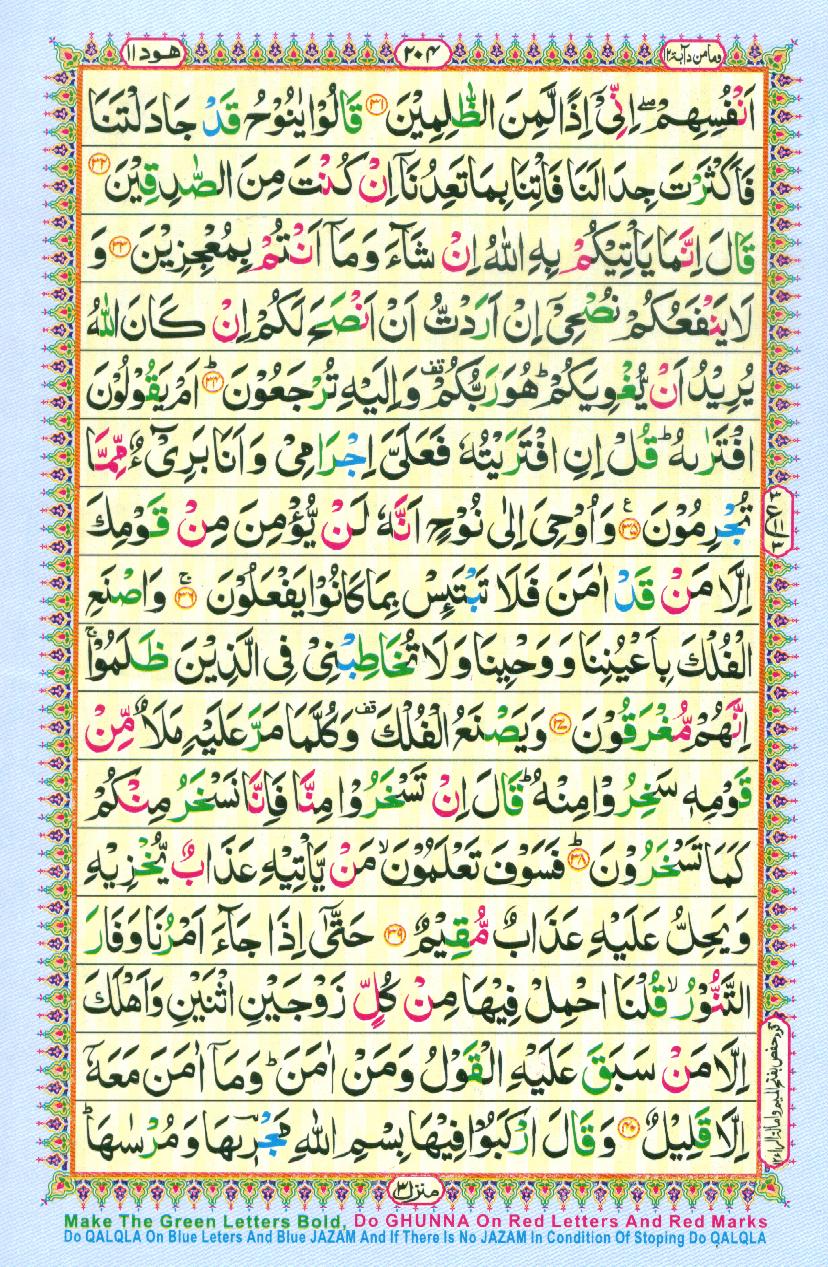 وما من دآبة ١٢
٢٠٤
هود ١١
اَنْفُسِهِمْ ۖۚ اِنِّیْۤ اِذًا لَّمِنَ الظّٰلِمِیْنَ ﴿۳۱﴾ قَالُوْا یٰنُوْحُ قَدْ جَادَلْتَنَا
فَاَكْثَرْتَ جِدَالَنَا فَاْتِنَا بِمَا تَعِدُنَاۤ اِنْ كُنْتَ مِنَ الصّٰدِقِیْنَ ﴿۳۲﴾
قَالَ اِنَّمَا یَاْتِیْكُمْ بِهِ اللّٰهُ اِنْ شَآءَ وَ مَاۤ اَنْتُمْ بِمُعْجِزِیْنَ ﴿۳۳﴾ وَ
لَا یَنْفَعُكُمْ نُصْحِیْۤ اِنْ اَرَدْتُّ اَنْ اَنْصَحَ لَكُمْ اِنْ كَانَ اللّٰهُ
یُرِیْدُ اَنْ یُّغْوِیَكُمْ ؕ هُوَ رَبُّكُمْ ۫ وَ اِلَیْهِ تُرْجَعُوْنَ ﴿۳۴﴾ؕ اَمْ یَقُوْلُوْنَ
افْتَرٰىهُ ؕ قُلْ اِنِ افْتَرَیْتُهٗ فَعَلَیَّ اِجْرَامِیْ وَ اَنَا بَرِیْٓءٌ مِّمَّا
تُجْرِمُوْنَ ﴿۳۵﴾ع وَ اُوْحِیَ اِلٰی نُوْحٍ اَنَّهٗ لَنْ یُّؤْمِنَ مِنْ قَوْمِكَ
اِلَّا مَنْ قَدْ اٰمَنَ فَلَا تَبْتَىِٕسْ بِمَا كَانُوْا یَفْعَلُوْنَ ﴿۳۶﴾ۚ وَ اصْنَعِ
الْفُلْكَ بِاَعْیُنِنَا وَ وَحْیِنَا وَ لَا تُخَاطِبْنِیْ فِی الَّذِیْنَ ظَلَمُوْا ۚ
اِنَّهُمْ مُّغْرَقُوْنَ ﴿۳۷﴾ وَ یَصْنَعُ الْفُلْكَ ۫ وَ كُلَّمَا مَرَّ عَلَیْهِ مَلَاٌ مِّنْ
قَوْمِهٖ سَخِرُوْا مِنْهُ ؕ قَالَ اِنْ تَسْخَرُوْا مِنَّا فَاِنَّا نَسْخَرُ مِنْكُمْ
كَمَا تَسْخَرُوْنَ ﴿۳۸﴾ؕ فَسَوْفَ تَعْلَمُوْنَ ۙ مَنْ یَّاْتِیْهِ عَذَابٌ یُّخْزِیْهِ
وَ یَحِلُّ عَلَیْهِ عَذَابٌ مُّقِیْمٌ ﴿۳۹﴾ حَتّٰۤی اِذَا جَآءَ اَمْرُنَا وَ فَارَ
التَّنُّوْرُ ۙ قُلْنَا احْمِلْ فِیْهَا مِنْ كُلٍّ زَوْجَیْنِ اثْنَیْنِ وَ اَهْلَكَ
اِلَّا مَنْ سَبَقَ عَلَیْهِ الْقَوْلُ وَ مَنْ اٰمَنَ ؕ وَ مَاۤ اٰمَنَ مَعَهٗۤ
اِلَّا قَلِیْلٌ ﴿۴۰﴾ وَ قَالَ ارْكَبُوْا فِیْهَا بِسْمِ اللّٰهِ مَجْرٖىهَا وَ مُرْسٰىهَا ؕ
منزل ٣
Make The Green Letters Bold, Do GHUNNA On Red Letters And Red Marks
Do QALQLA On Blue Leters And Blue JAZAM And If There Is No JAZAM In Condition Of Stoping Do QALQLA